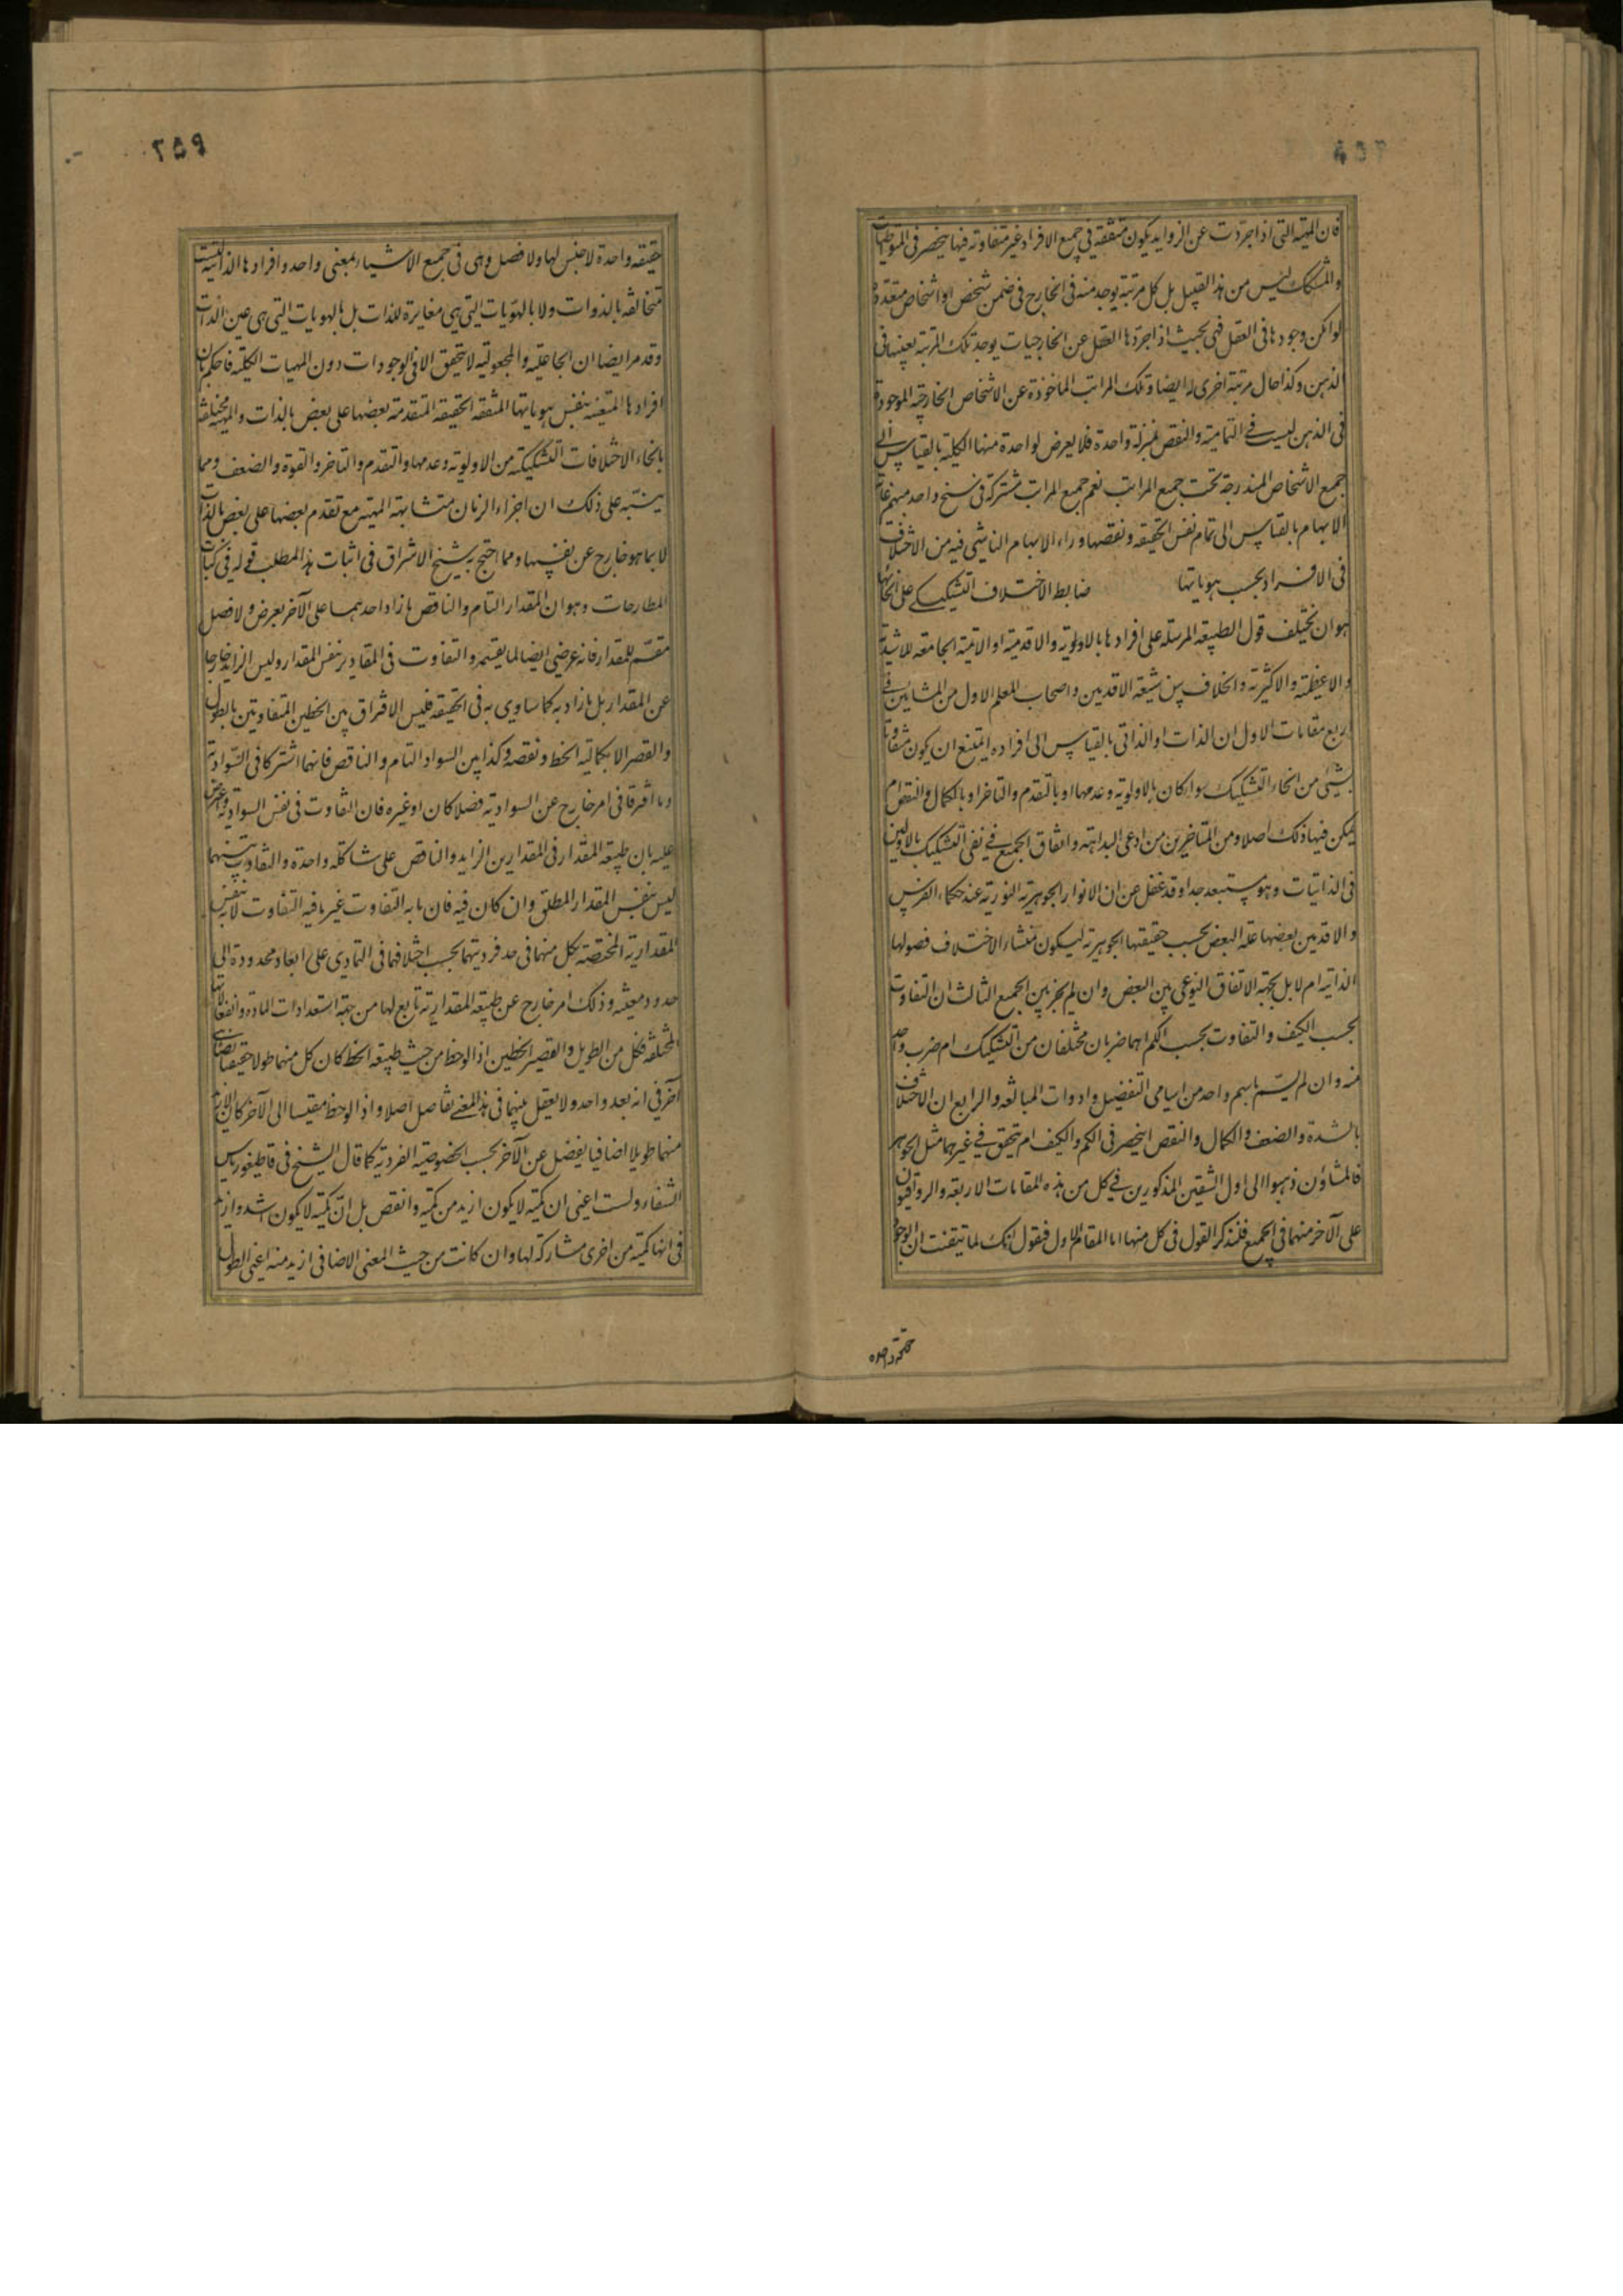 فان المهية التى اذا جردت عن الزوايد يكون متفقة في جميع الافراد غير متفاوتة فيها ينحصر فى المتواطيات
والمشكك ليس من هذا القبيل بل كل مرتبة يوجد منه فى الخارج فى ضمن شخص او اشخاص متعددة
لو امكن وجودها فى العقل فهى بحيث اذا جردها العقل عن الخارجيات يوجد تلك المرتبة بعينها فى
الذهن وكذا حال مرتبة اخرى له ايضا وتلك المراتب الماخوذة عن الاشخاص الخارجية الموجودة
فى الذهن ليست فے التمامية والنقص بمنزلة واحدة فلا يعرض لواحدة منها الكلية بالقياس الى
جميع الاشخاص المندرجة تحت جميع المراتب نعم جميع المراتب مشتركة فى سنخ واحد مبهم غاية
الابهام بالقياس الى تمام نفس الحقيقة ونقصها وراء الابهام الناشى فيه من الاختلاف
فى الافراد بحسب هوياتها ضابط الاختلاف التشكيكے على انحائها
هو ان يختلف قول الطبيعة المرسلة على افرادها بالاولوية والاقدمية او الاتمية الجامعة للاشدية
والاعظمية والاكثرية والخلاف بين شيعة الاقدمين واصحاب المعلم الاول من المشايين فے
اربع مقامات الاول ان الذات او الذاتى بالقياس الى افراده ايمتنع ان يكون متفاوتا
بشيئ من انحاء التشكيك سواء كان بالاولوية وعدمها او بالتقدم والتاخر او بالكمال والنقص ام
يمكن فيها ذلك اصلا ومن المتاخرين من ادعى البداهة واتفاق الجميع فے نفى التشكيك بالاولين
فى الذاتيات وهو مستبعد جدا وقد غفل عن ان الانوار الجوهرية النورية عند حكماء الفرس
والاقدمين بعضها علة البعض بحسب حقيقتها الجوهرية ليكون منشاء الاختلاف فصولها
الذاتية ام لا بل بجهة الاتفاق النوعى بين البعض وان لم يجز بين الجميع الثالث ان التفاوت
بحسب الكيف والتفاوت بحسب الكم اهما ضربان مختلفان من التشكيك ام ضرب واحد
منه وان لم يسم باسم واحد من اسامى التفضيل وادوات المبالغة والرابع ان الاختلاف
بالشدة والضعف والكمال والنقص اينحصر فى الكم والكيف ام يتحقق فے غيرهما مثل الجوهر
فالمشاؤن ذهبوا الى اول الشقين المذكورين فے كل من هذه المقامات الاربعة والرواقيون
على الآخر منهما فى الجميع فلنذكر القول فى كل منها اما المقام الاول فنقول انك لما تيقنت ان الوجود
حقيقة واحدة
٢٥٩
حقيقة واحدة لا جنس لها ولا فصل وهى فى جميع الاشياء بمعنى واحد وافرادها الذاتية ليست
متخالفة بالذوات ولا بالهويات التى هى مغايرة للذات بل بالهويات التى هى عين الذات
وقد مر ايضا ان الجاعلية والمجعولية لا يتحقق الا فى الوجودات دون المهيات الكلية فاحكم بان
افرادها المتعينة بنفس هوياتها المتفقة الحقيقة المتقدمة بعضها على بعض بالذات والمهية مختلفة
بانحاء الاختلافات التشكيكية من الاولوية وعدمها والتقدم والتاخر والقوة والضعف ومما
ينبه على ذلك ان اجزاء الزمان متشابهة المهية مع تقدم بعضها على بعض بالذات
لا بما هو خارج عن نفسها ومما احتج به شيخ الاشراق فى اثبات هذا المطلب قوله فى كتاب
المطارحات وهو ان المقدار التام والناقص ما زاد احدهما على الآخر بعرض ولا فصل
مقسم للمقدار فانه عرضى ايضا لما يقسمه والتفاوت فى المقادير بنفس المقدار وليس الزايد خارجا
عن المقدار بل ما زاد به كما ساوى به فى الحقيقة فليس الافتراق بين الخطين المتفاوتين بالطول
والقصر الا بكمالية الخط ونقصه وكذا بين السواد التام والناقص فانهما اشتركا فى السوادية
وما افترقا فى امر خارج عن السوادية فضلا كان او غيره فان التفاوت فى نفس السوادية واعترض
عليه بان طبيعة المقدار فى المقدارين الزايد والناقص على شاكلة واحدة والتفاوت بينهما
ليس بنفس المقدار المطلق وان كان فيه فان ما به التفاوت غير ما فيه التفاوت لا بنفس
المقدارية المختصة بكل منهما فى حد فرديتهما بحسب اختلافهما فى التمادى على ابعاد محدودة الى
حدود معينة وذلك امر خارج عن طبيعة المقدارية تابع لها من جهة استعدادات المادة وانفعالاتها
المختلفة فكل من الطويل والقصير الخطين اذا لوحظ من حيث طبيعة الخط كان كل منهما طولا حقيقيا يضاهى
آخر فى انه بعد واحد ولا يعقل بينهما فى هذا المعنے تفاصل اصلا واذا لوحظ مقيسا الى الآخر كان الازيد
منهما طويلا اضافيا يفضل عن الآخر بحسب الخصوصية الفردية كما قال الشيخ فى قاطيغورياس
الشفاء ولست اعنى ان كمية لا يكون ازيد من كمية وانقص بل ان كمية لا يكون اشد وازيد
فى انها كمية من اخرى مشاركة لها وان كانت من حيث المعنى الاضافى ازيد منه اعنى الطول